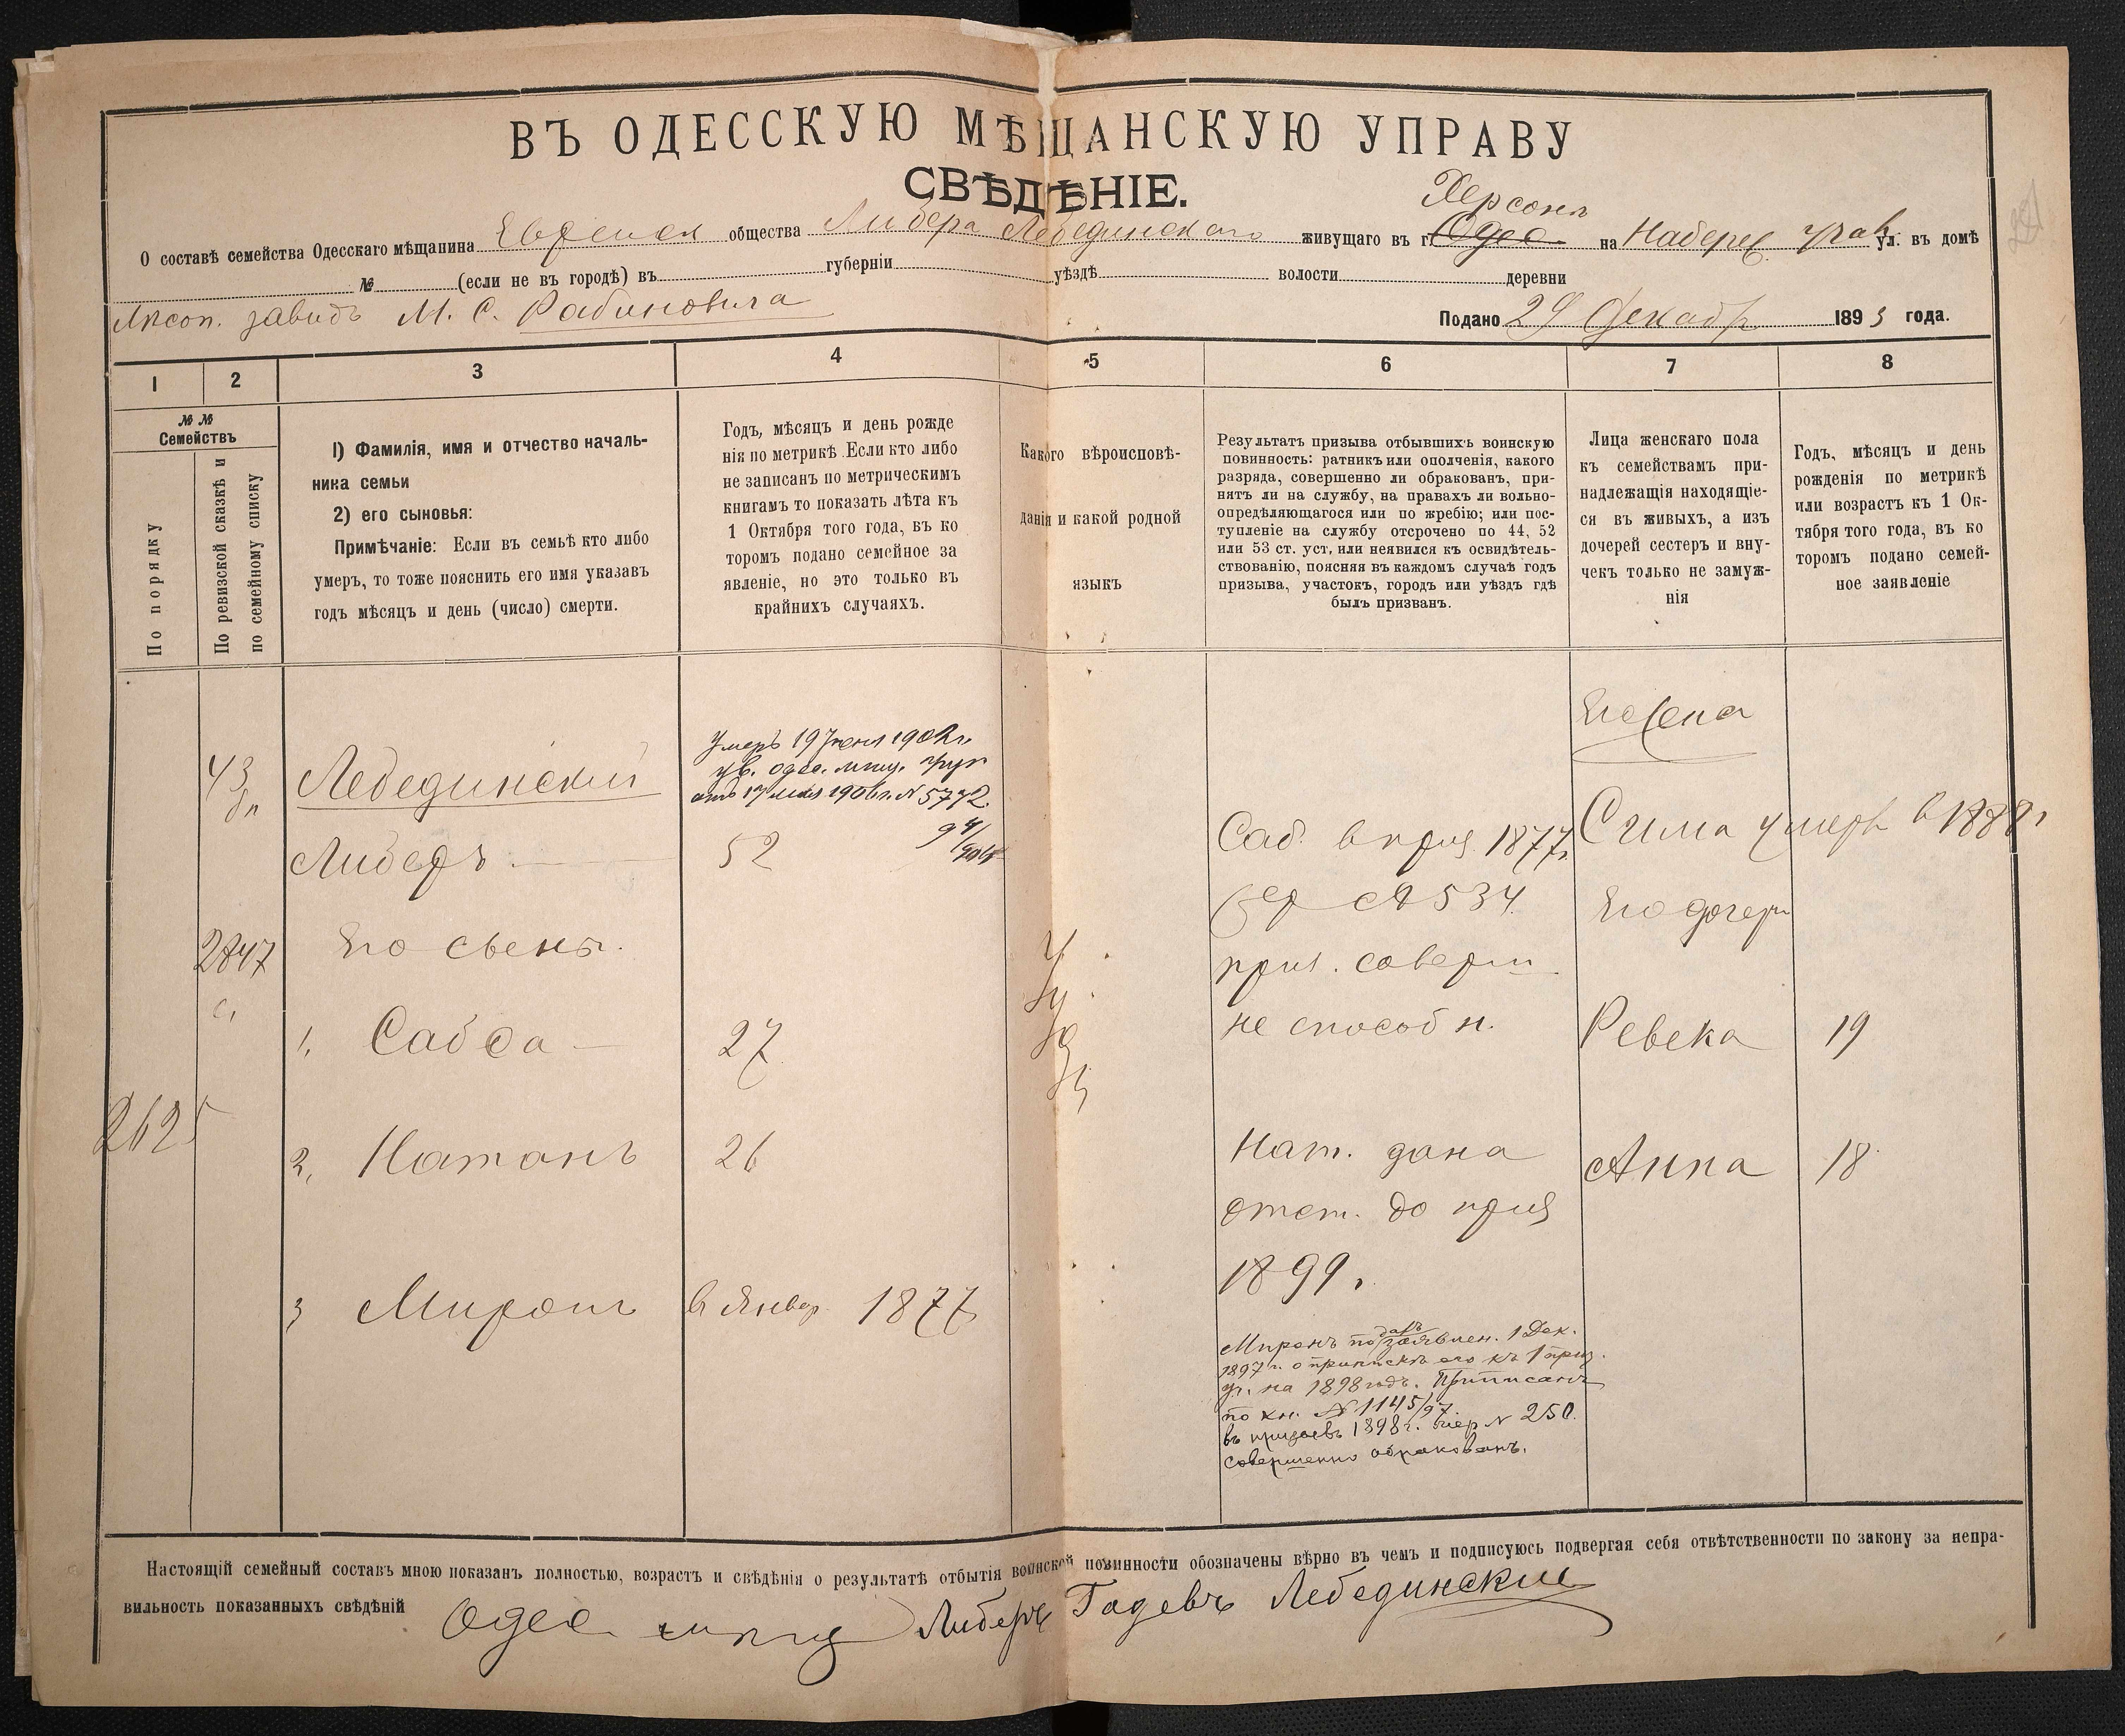 ВЪ ОДЕССКУЮ МѢЩАНСКУЮ УПРАВУ
СВѢДѢНІЕ.
Херсонъ
О составѣ семейства Одесскаго мѣщанина Еврейск общества Либера Лебединскаго живущаго въ г. Одес на Наберес ул. въ домѣ
№ (если не въ городѣ) въ губерніи уѣздѣ волости деревни
завидъ М. С. Рабиновича
Подано 29 Декабр 1893 года.
1 2 3 4 5 6 7 8
№ № Семействъ
По порядку
По ревизской сказкѣ и по семейному списку
1) Фамилія, имя и отчество началь-
ника семьи
2) его сыновья:
Примѣчаніе: Если въ семьѣ кто либо
умеръ, то тоже пояснить его имя указавъ
годъ мѣсяцъ и день (число) смерти.
Годъ, мѣсяцъ и день рожде
нія по метрикѣ. Если кто либо
не записанъ по метрическимъ
книгамъ то показать лѣта къ
1 Октября того года, въ ко
торомъ подано семейное за
явленіе, но это только въ
крайнихъ случаяхъ.
Какого вѣроисповѣ-
данія и какой родной
языкъ
Результатъ призыва отбывшихъ воинскую
повинность: ратникъ или ополченія, какого
разряда, совершенно ли обракованъ, при-
нятъ ли на службу, на правахъ ли вольно-
опредѣляющагося или по жребію; или пос-
тупленіе на службу отсрочено по 44, 52
или 53 ст. уст. или неявился къ освидѣтель-
ствованію, поясняя въ каждомъ случаѣ годъ
призыва, участокъ, городъ или уѣздъ гдѣ
былъ призванъ.
Лица женскаго пола
къ семействамъ при-
надлежащія находящіе-
ся въ живыхъ, а изъ
дочерей сестеръ и вну-
чекъ только не замуж-
нія
Годъ, мѣсяцъ и день
рожденія по метрикѣ
или возрастъ къ 1 Ок-
тября того года, въ ко
торомъ подано семей-
ное заявленіе
Его жена
43
Лебединскій
Умеръ 19 Іюня 1902 г.
ув. одес. мещ. упр
отъ 17 мая 1906 г. N 5772.
Либеръ 52
Саб. в приз 1877 г.
Сима умерл в 1888 г
жер № 534.
Его дочери
2847
Его сыны.
приз. соверш
не способн.
1. Сабса 27
Ревека 19
2625
2. Натанъ 26
Нат. дана
отст. до приз
1899 г.
Анна 18
3 Миронъ в Январ. 1877
Миронъ подалъ заявлен. 1 Дек.
1897 г. о припискѣ его къ 1 приз.
уч. на 1898 годъ. Приписанъ
по кн. № 1145/97.
въ призывъ 1898 г. жер N 250.
совершенно обракованъ.
Настоящій семейный составъ мною показанъ полностью, возрастъ и свѣдѣнія о результатѣ отбытія воинской повинности обозначены вѣрно въ чемъ и подписуюсь подвергая себя отвѣтственности по закону за непра-
вильность показанныхъ свѣдѣній
Одес Либеръ Гадевъ Лебединскій